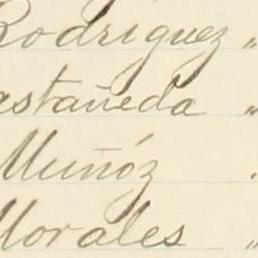 Rodriguez "
astañeda "
Muñóz "
Morales "